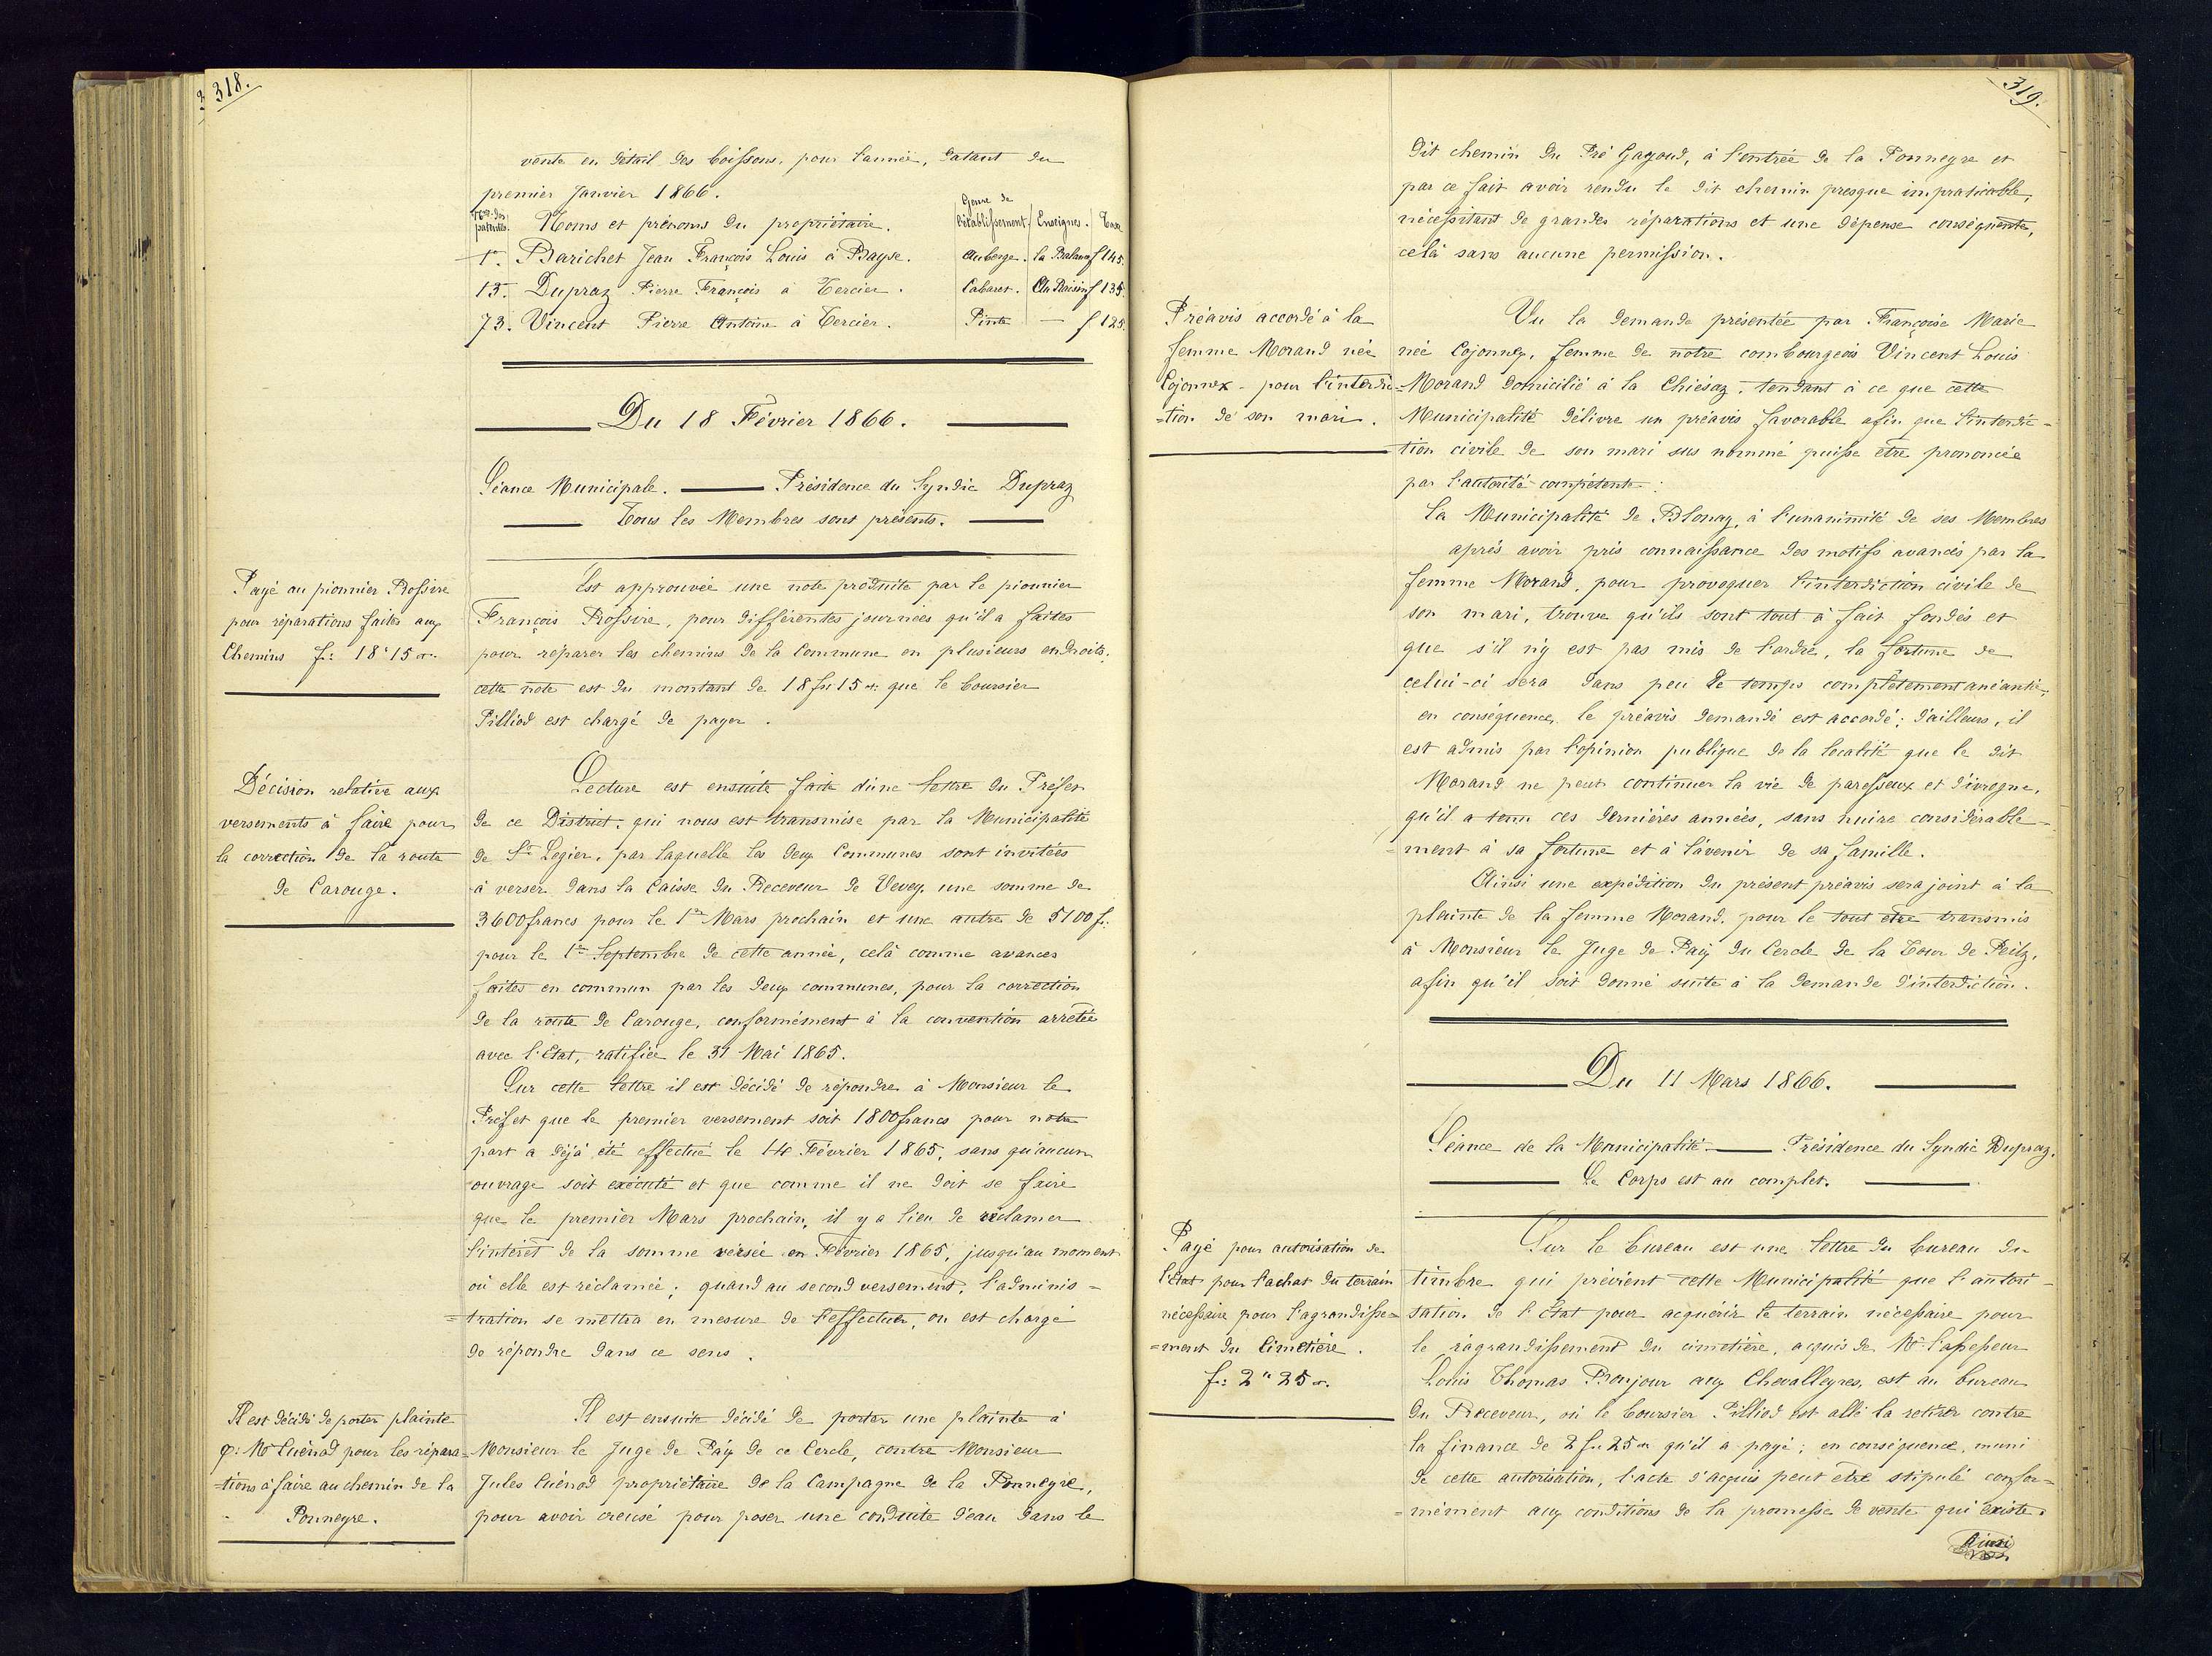 318.
vente en détail des boissons, pour l'année, datant du
premier Janvier 1866.
Nos. des patentes. Noms et prénoms du propriétaire. Genre de l'établissement. Enseignes. Taxe
1. Barichet Jean François Louis à Bayse. Auberge. la Balance f 145.
15. Dupraz Pierre François à Tercier. Cabaret. Au Raisin f 135.
73. Vincent Pierre Antoine à Tercier. Pinte — f 125.
Du 18 Février 1866.
Séance Municipale. Présidence du Syndic Dupraz
Tous les Membres sont présents.
Payé au pionnier Rossire
pour réparations faites aux
Chemins f: 18"15 c.
Est approuvée une note produite par le pionnier
François Rossire, pour différentes journées qu'il a faites
pour réparer les chemins de la Commune en plusieurs endroits,
cette note est du montant de 18 fr: 15 c: que le boursier
Pilliod est chargé de payer.
Décision relative aux
versements à faire pour
la correction de la route
de Carouge.
Lecture est ensuite faite d'une lettre du Préfet
de ce District, qui nous est transmise par la Municipalité
de St Legier, par laquelle les deux Communes sont invitées
à verser dans la Caisse du Receveur de Vevey une somme de
3600 francs pour le 1er Mars prochain et une autre de 5100 f:
pour le 1er Septembre de cette année, celà comme avances
faites en commun par les deux communes, pour la correction
de la route de Carouge, conformément à la convention arretée
avec l'Etat, ratifiée le 31 Mai 1865.
Sur cette lettre il est décidé de répondre à Monsieur le
Préfet que le premier versement soit 1800 francs pour notre
part a déjà été effectué le 14 Février 1865, sans qu'aucun
ouvrage soit exécuté et que comme il ne doit se faire
que le premier Mars prochain, il y a lieu de réclamer
l'intéret de la somme versée en Février 1865, jusqu'au moment
où elle est réclamée; quand au second versement, l'adminis=
=tration se mettra en mesure de l'effectuer, on est chargé
de répondre dans ce sens.
Il est décidé de porter plainte
c: Mr Cuénod pour les répara=
=tions à faire au chemin de la
Ponneyre.
Il est ensuite décidé de porter une plainte à
Monsieur le Juge de Paix de ce Cercle, contre Monsieur
Jules Cuénod propriétaire de la Campagne de la Ponneyre,
pour avoir creusé pour poser une conduite d'eau dans le
319.
dit chemin du Pré Gagoud, à l'entrée de la Ponneyre et
par ce fait avoir rendu le dit chemin presque impraticable,
nécessitant de grandes réparations et une dépense conséquente,
celà sans aucune permission.
Préavis accordé à la
femme Morand née
Cojonnex - pour l'interdic=
=tion de son mari.
Vu la demande présentée par Françoise Marie
née Cojonnex, femme de notre combourgeois Vincent Louis
Morand domicilié à la Chiésaz, tendant à ce que cette
Municipalité délivre un préavis favorable afin que l'interdic=
tion civile de son mari sus nommé puisse être prononcée
par l'autorité compétente:
La Municipalité de Blonay, à l'unanimité de ses Membres
après avoir pris connaissance des motifs avancés par la
femme Morand, pour provoquer l'interdiction civile de
son mari, trouve qu'ils sont tout à fait fondés et
que s'il n'y est pas mis de l'ordre, la fortune de
celui-ci sera dans peu de temps complètement anéantie;
en conséquence, le préavis demandé est accordé; d'ailleurs, il
est admis par l'opinion publique de la localité que le dit
Morand ne peut continuer la vie de paresseux et d'ivrogne,
qu'il a tenu ces dernières années, sans nuire considérable=
=ment à sa fortune et à l'avenir de sa famille.
Ainsi une expédition du présent préavis sera joint à la
plainte de la femme Morand, pour le tout être transmis
à Monsieur le Juge de Paix du Cercle de la Tour de Peilz,
afin qu'il soit donné suite à la demande d'interdiction.
Du 11 Mars 1866.
Séance de la Municipalité. Présidence du Syndic Dupraz.
Le Corps est au complet.
Payé pour autorisation de
l'Etat pour l'achat du terrain
nécessaire pour l'agrandisse=
=ment du Cimetière.
f: 2"25 c.
Sur le bureau est une lettre du bureau du
timbre qui prévient cette Municipalité que l'autori=
sation de l'Etat pour acquérir le terrain nécessaire pour
le ragrandissement du cimetière, acquis de Mr l'assesseur
Louis Thomas Bonjour aux Chevalleyres, est au bureau
du Receveur, où le boursier Pilliod est allé la retirer contre
la finance de 2 fr: 25 c: qu'il a payé; en conséquence, muni
de cette autorisation, l'acte d'acquis peut être stipulé confor=
=mément aux conditions de la promesse de vente qui existe.
Ainsi